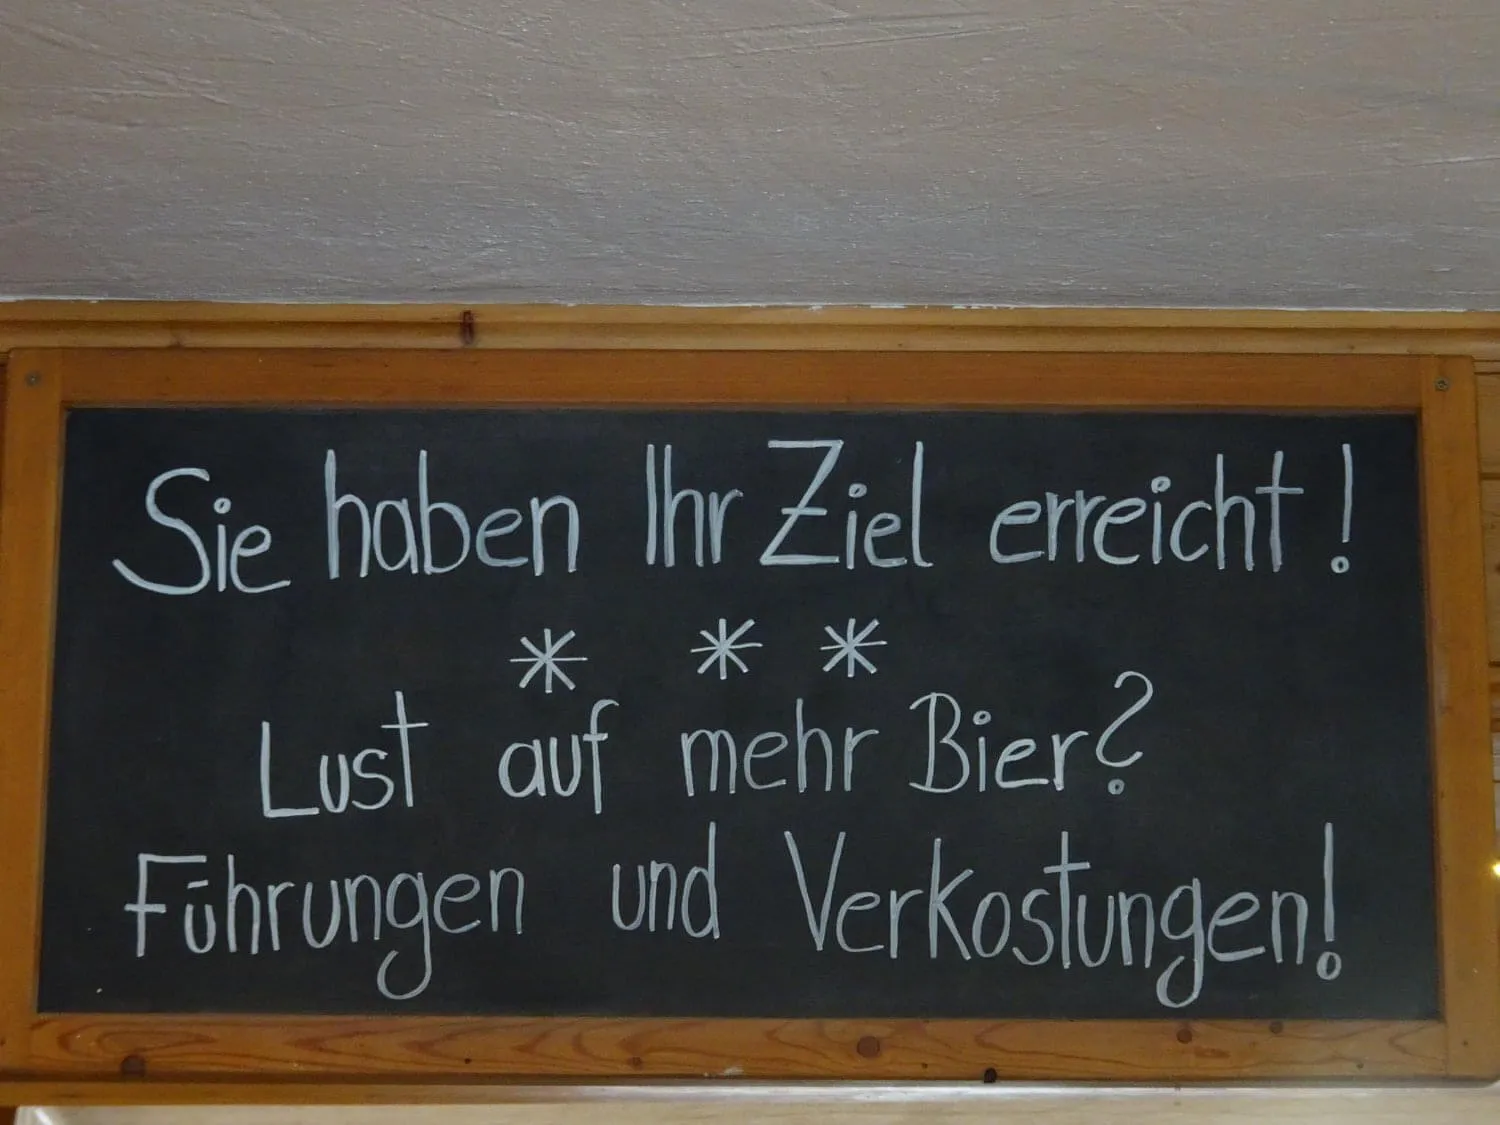 Sie haben Ihr Ziel erreicht!
* * *
Lust auf mehr Bier?
Führungen und Verkostungen!